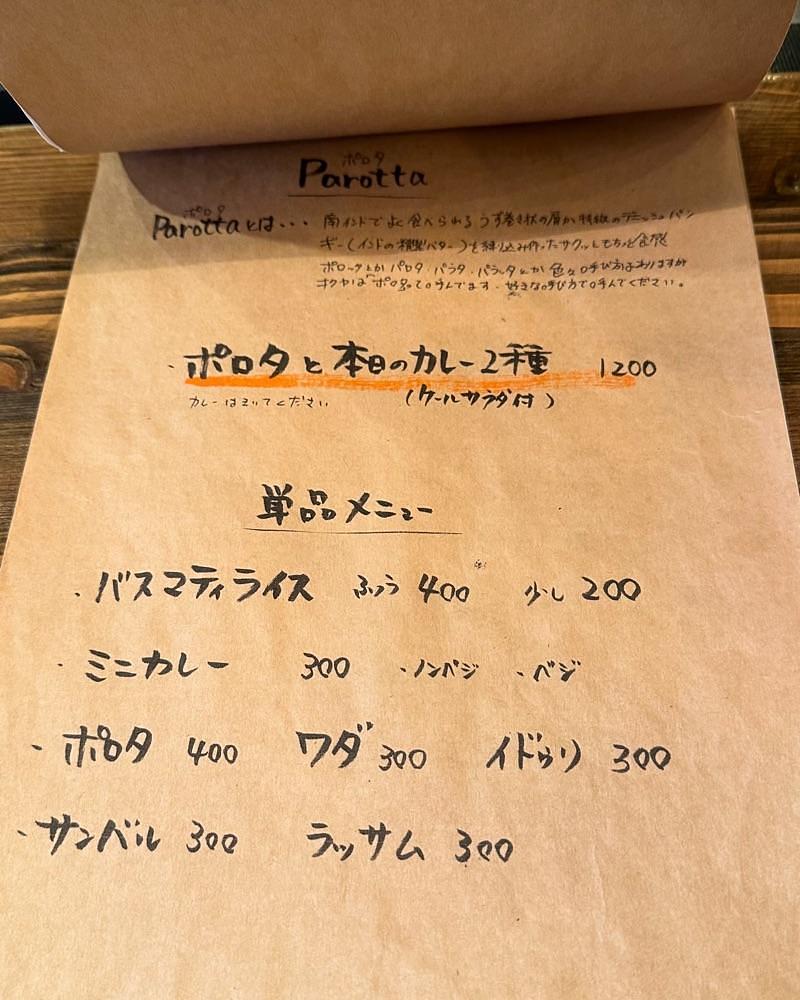 ポロタ
Parotta
ポロタ
Parottaとは・・・ 南インドでよく食べられるうず巻き状の層が特徴のデニッシュパン
ギー(インドの精製バター)を練り込み作ったサクッともちっと食感
ポロッタとかパロタ・パラタ・パラッタとか色々呼び方はありますが
オクヤは"ポロタ"って呼んでます。好きな呼び方で呼んでください。
・ポロタと本日のカレー2種 1200
カレーはえらってください (クールサラダ付)
単品メニュー
・バスマティライス ふつう 400 少し 200
・ミニカレー 300 ・ノンベジ ・ベジ
・ポロタ 400 ワダ 300 イドゥリ 300
・サンバル 300 ラッサム 300